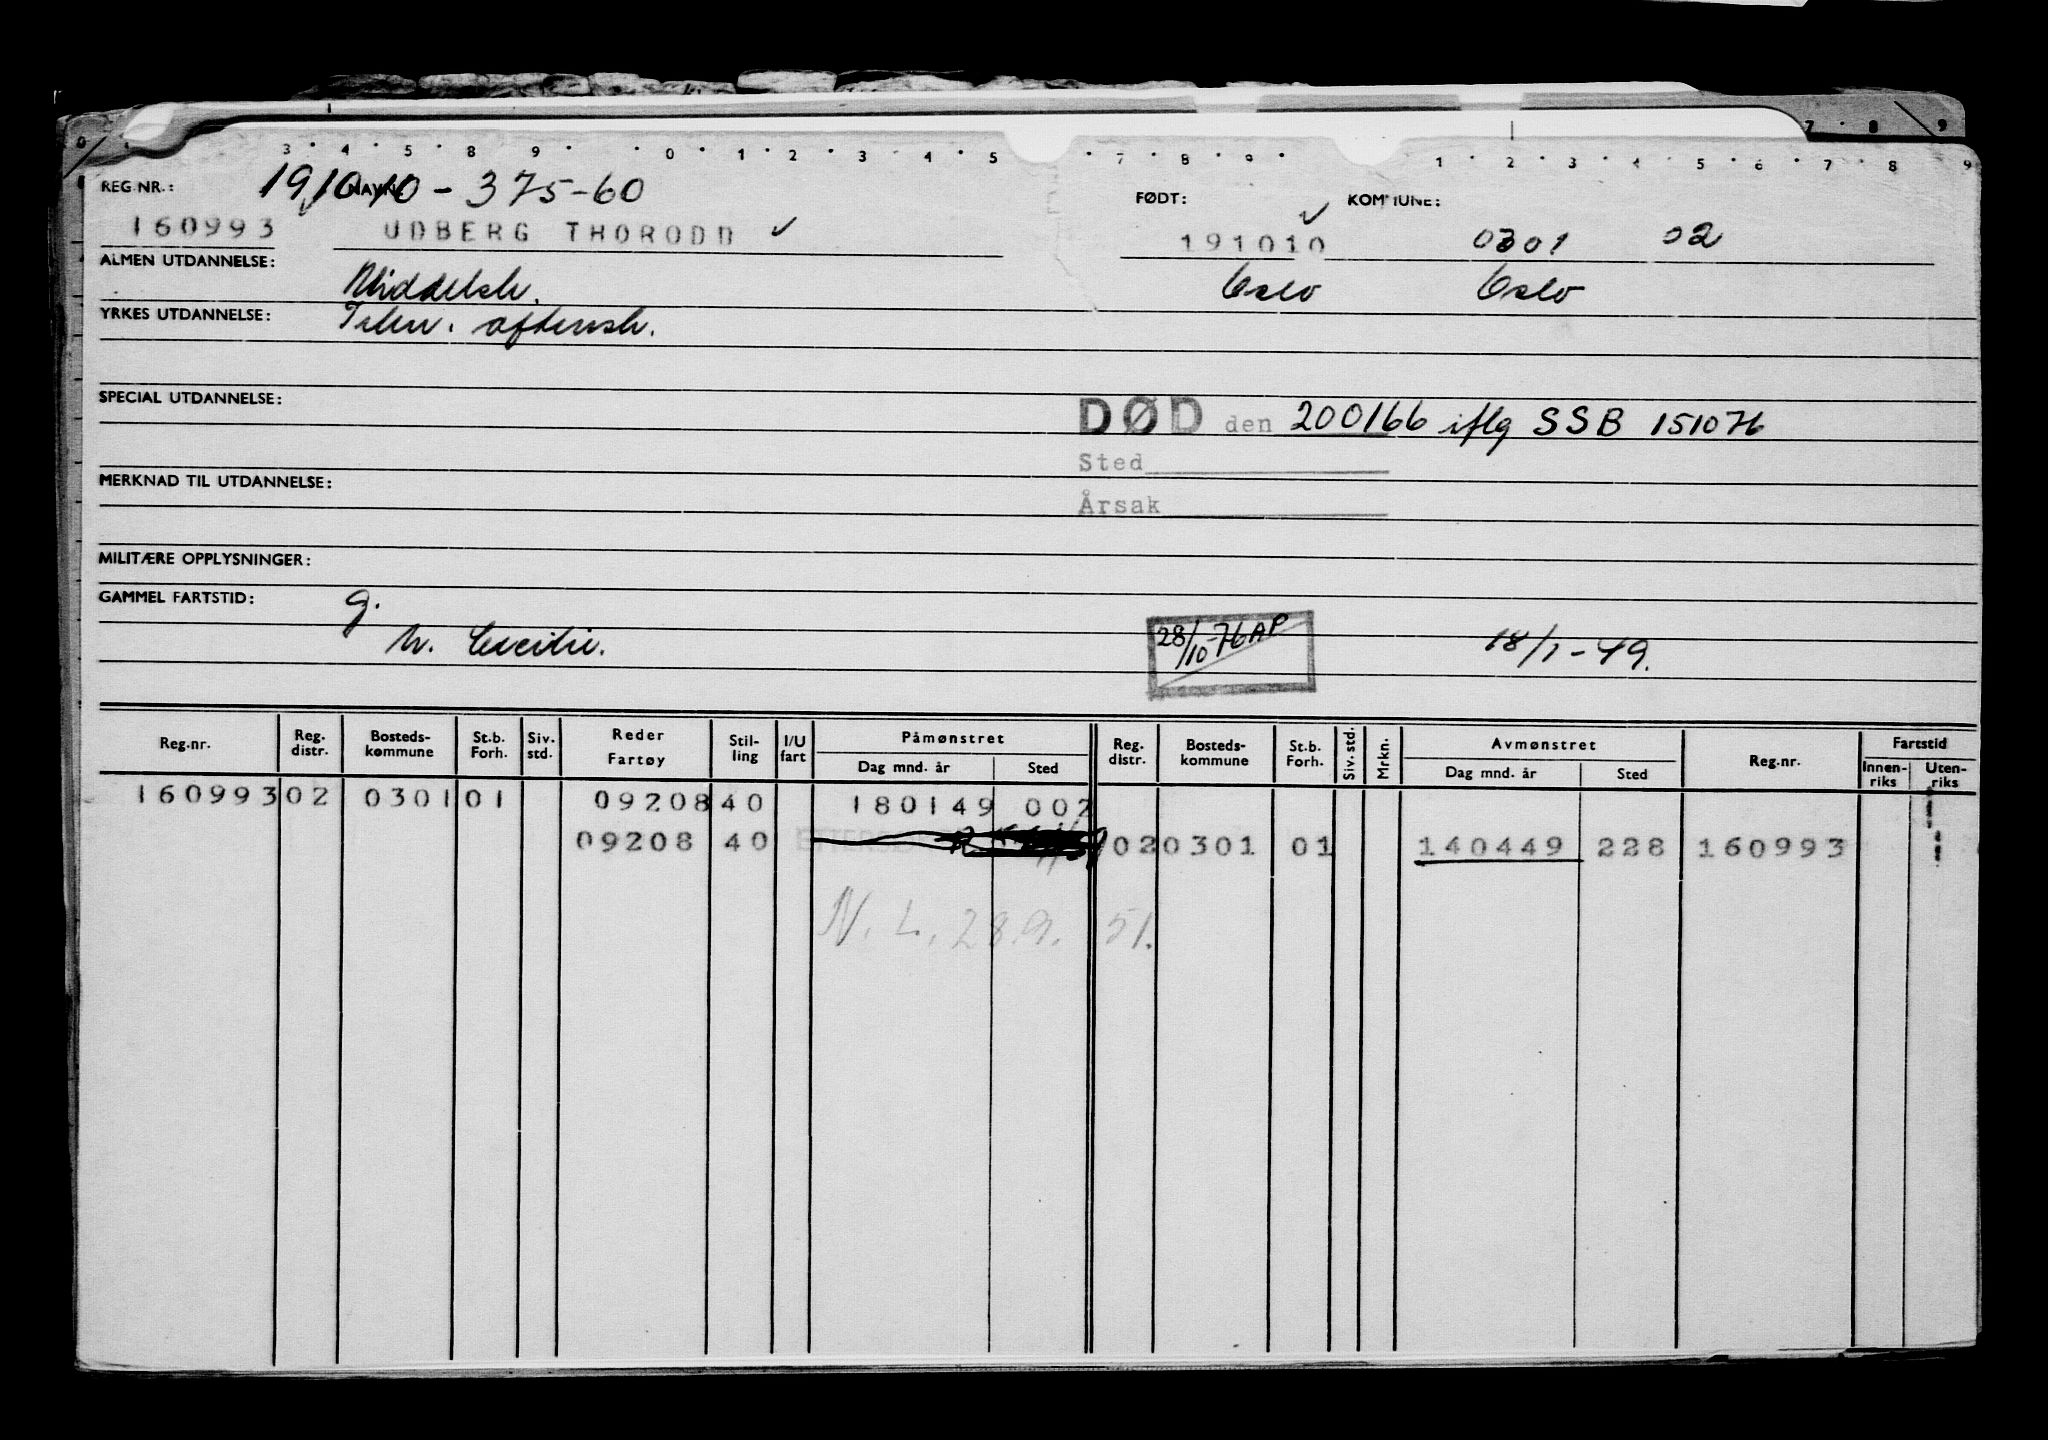 0 7 8 9
3 4 5 8 9 0 1 2 3 4 5 7 8 9 1 2 3 4 5 6 7 8 9
REG.NR.: NAVN: 191010-375-60 FØDT: KOMMUNE:
160993 UDBERG THORODD ✓ 191010 0301 02
ALMEN UTDANNELSE: Middelsk. Oslo Oslo
YRKES UTDANNELSE: aftensk.
SPECIAL UTDANNELSE: DØD den 200166 iflg SSB 151076
Sted
MERKNAD TIL UTDANNELSE:
Årsak
MILITÆRE OPPLYSNINGER:
GAMMEL FARTSTID: g.
M. Cecilie. 28/10-76 AP 18/1-49.
Reg.nr. Reg. distr. Bosteds-kommune St.b. Forh. Siv. std. Reder Fartøy Stil-ling I/U fart Påmønstret Dag mnd. år Sted Reg. distr. Bosteds-kommune St.b. Forh. Siv. std. Mrkn. Avmønstret Dag mnd. år Sted Reg.nr. Fartstid Innen-riks Uten-riks
160993 02 0301 01 09208 40 180149 002
09208 40 02 0301 01 140449 228 160993
N.L. 28.9. 51.